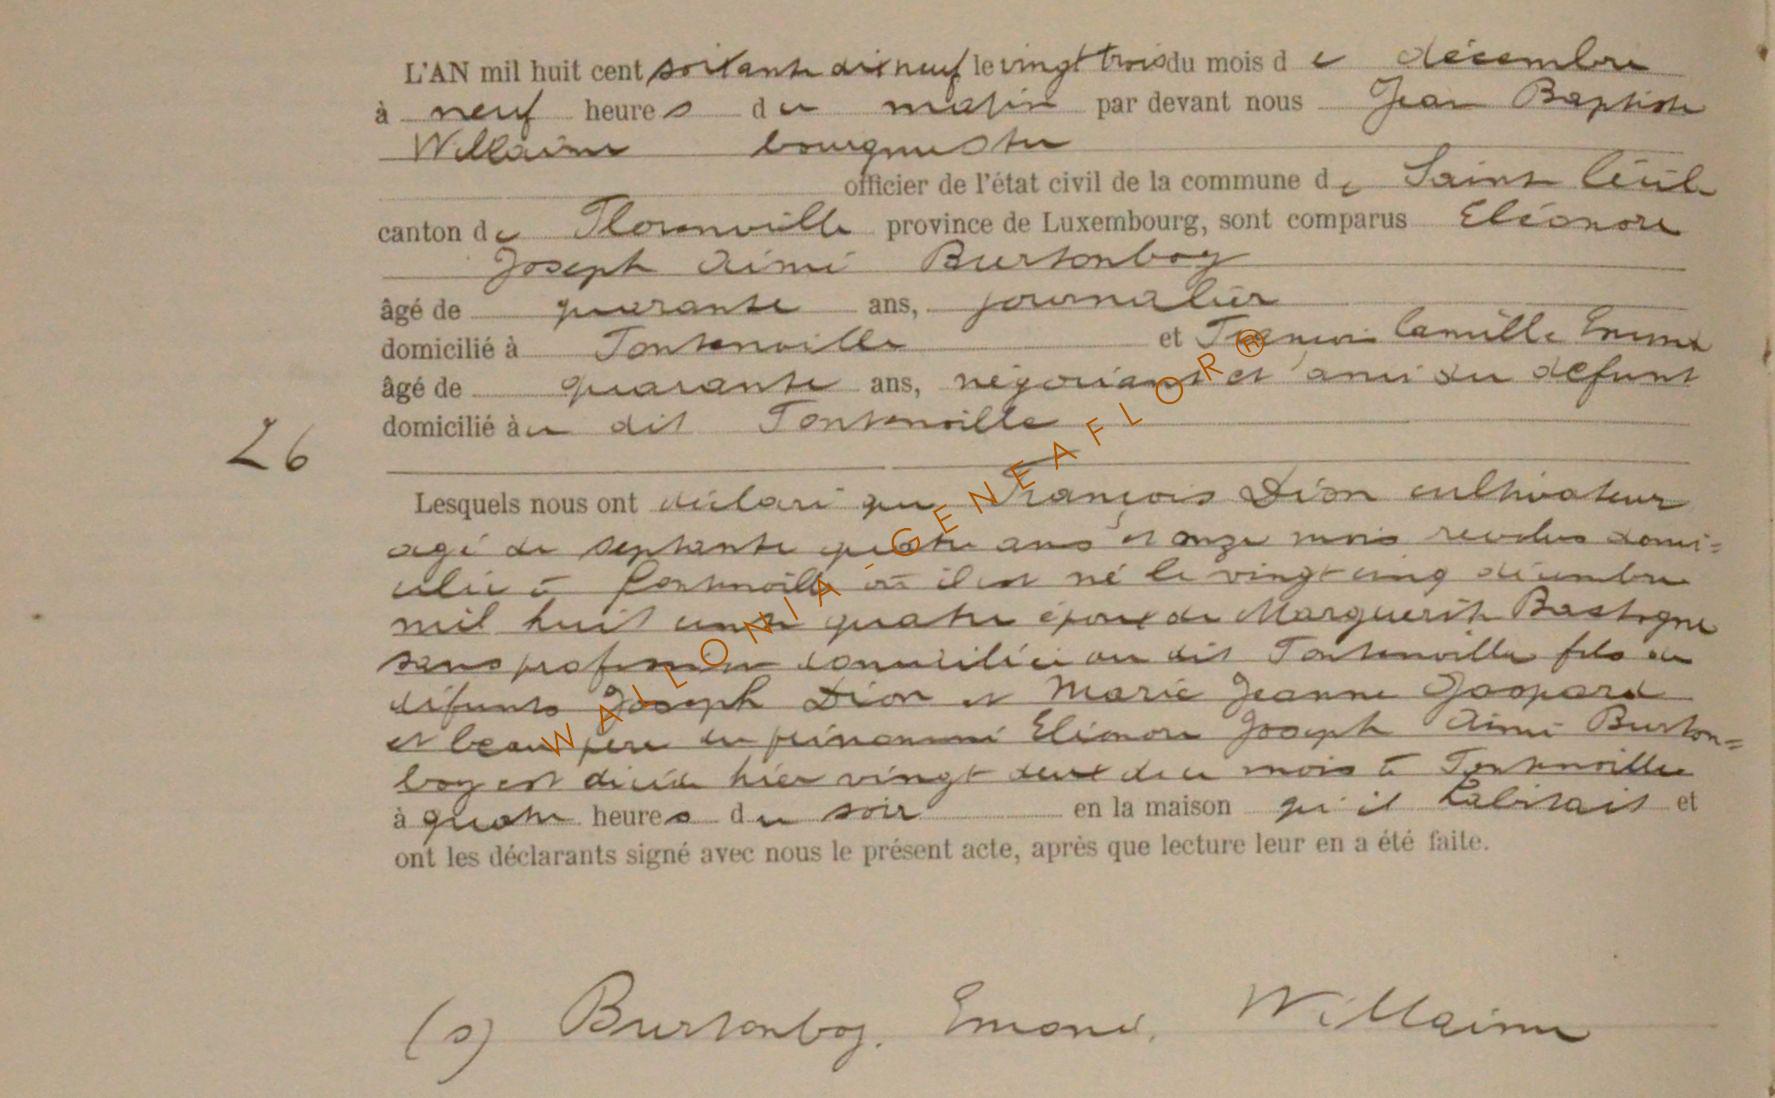 L'AN mil huit cent soixante dix neuf le vingt trois du mois de décembre
à neuf heures du matin par devant nous Jean Baptiste
Willaime bourgmestre
officier de l'état civil de la commune de Saint Cécile
canton de Florenville province de Luxembourg, sont comparus Eléonore
Joseph Aimé Burtonboy
âgé de quarante ans, journalier
domicilié à Fontenoille et François Camille Emond
âgé de quarante ans, négociant et ami du défunt
domicilié àu dit Fontenoille
26
Lesquels nous ont déclaré que François Dion cultivateur
agé de septante quatre ans et onze mois revolus domi=
cilié à Fontenoille où il est né le vingt cinq décembre
mil huit cent quatre époux de Marguerite Bastogne
sans profession domiciliée au dit Fontenoille fils de
défunts Joseph Dion et Marie Jeanne Gaspard
et beau père du prénommé Eléonore Joseph Aimé Burton=
boy est décédé hier vingt deux du mois à Fontenoille
à quatre heures du soir en la maison qu'il habitait et
ont les déclarants signé avec nous le présent acte, après que lecture leur en a été faite.
(s) Burtonboy. Emond. Willaime
WALLONIA-GENEAFLOR®